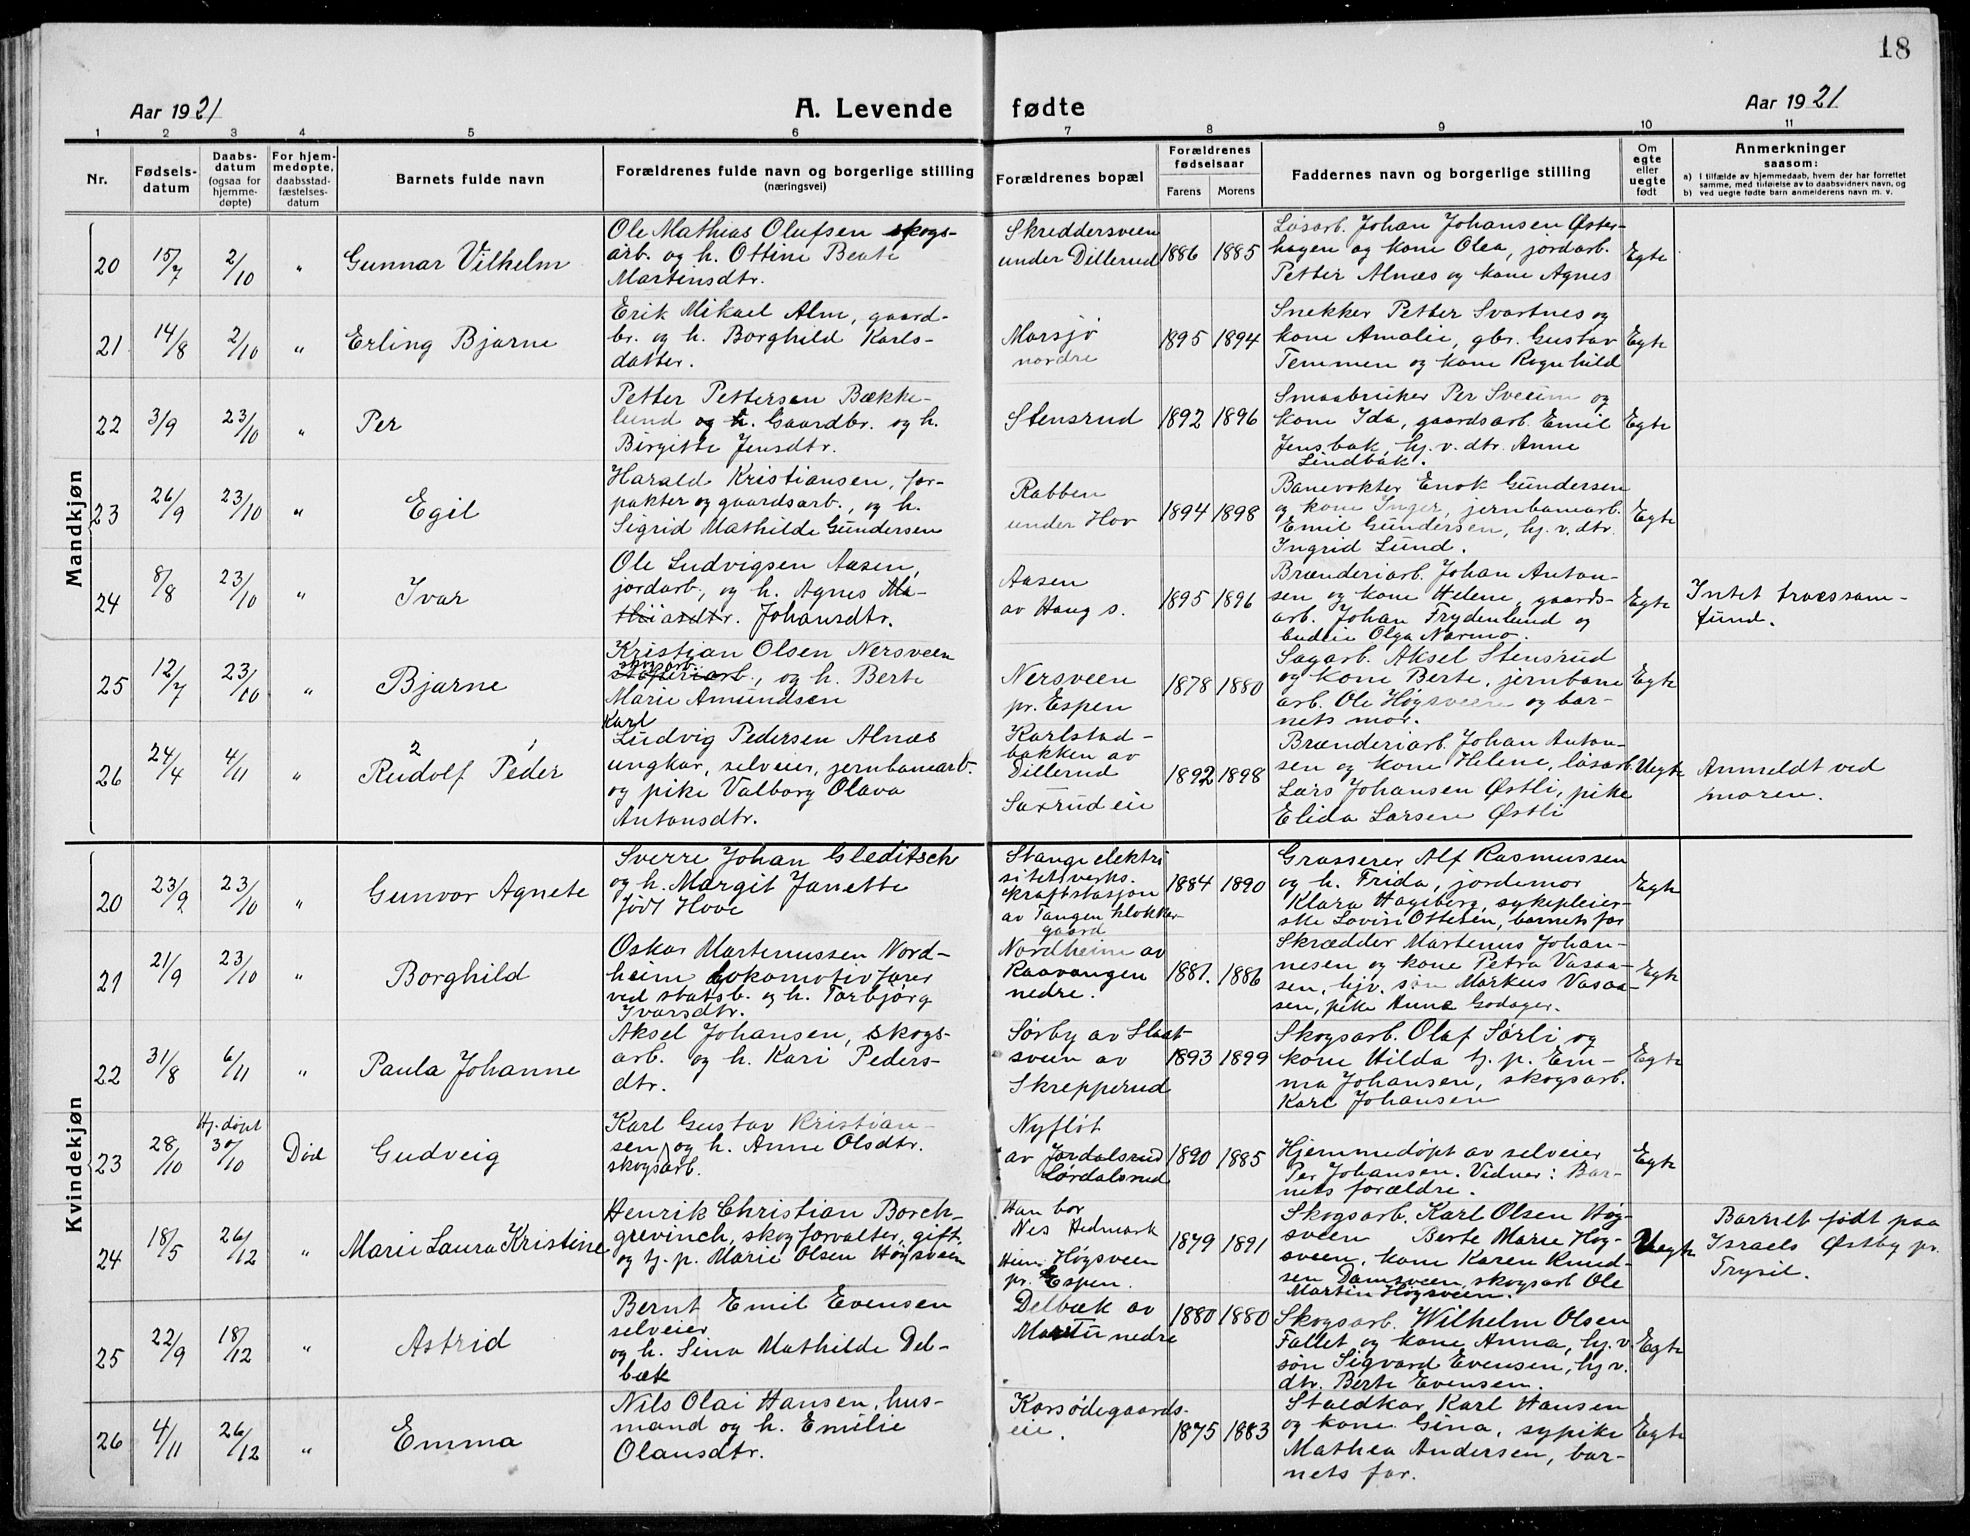 18
Aar 1921
A. Levende fødte
Aar 1921
1 2 3 4 5 6 7 8 9 10 11
Nr.
Fødsels-
datum
Daabs-
datum
(ogsaa for
hjemme-
døpte)
For hjem-
medøpte,
daabsstad-
fæstelses-
datum
Barnets fulde navn
Forældrenes fulde navn og borgerlige stilling
(næringsvei)
Forældrenes bopæl
Forældrenes
fødselsaar
Farens Morens
Faddernes navn og borgerlige stilling
Om
egte
eller
uegte
født
Anmerkninger
saasom:
a) I tilfælde av hjemmedaab, hvem der har forrettet
samme, med tilføielse av to daabsvidners navn, og
b) ved uegte fødte barn anmelderens navn m. v.
Mandkjøn
20 15/7 2/10 " Gunnar Vilhelm
Ole Mathias Olufsen skogs-
arb. og h. Ottine Beate
Martinsdtr.
Skreddersveen
under Dillerud
1886 1885
Løsarb. Johan Johansen Øster-
hagen og kone Olea, jordarb.
Petter Alnæs og kone Agnes
Egte
21 14/8 2/10 " Erling Bjarne
Erik Mikael Alm, gaard-
br. og h. Borghild Karls-
datter.
Marsjø
nordre
1895 1894
Snekker Petter Svartnes og
kone Amalie, gbr. Gustav
Temmen og kone Ragnhild
Egte
22 3/9 23/10 " Per
Petter Pettersen Bække-
lund og h. Gaardbr. og h.
Birgitte Jensdtr.
Stensrud
1892 1896
Smaabruker Per Sveum og
kone Ida, gaardsarb. Emil
Jensbak, hj. v. dtr. Anne
Lindbak.
Egte
23 26/9 23/10 " Egil
Harald Kristiansen, for-
pakter og gaardsarb., og h.
Sigrid Mathilde Gundersen
Rabben
under Hov
1894 1898
Banevokter Enok Gundersen
og kone Inger, jernbanearb.
Emil Gundersen, hj. v. dtr.
Ingrid Lund.
Egte
24 8/8 23/10 " Ivar
Ole Ludvigsen Aasen,
jordarb., og h. Agnes Ma-
thiasdtr. Johansdtr.
Aasen
av Haug s.
1895 1896
Brænderiarb. Johan Anton-
sen og kone Helene, gaards-
arb. Johan Frydenlund og
budeie Olga Narmo.
Egte
Intet trossam-
fund.
25 12/7 23/10 " Bjarne
Kristian Olsen Nersveen
skogsarb., og h. Berte
Marie Amundsen
Nersveen
pr. Espen
1878 1880
Sagarb. Aksel Stensrud
og kone Berte, jernbane
arb. Ole Høgsveen og bar-
nets mor.
Egte
26 24/4 4/11 " 2 1
Rudolf Peder
Karl
Ludvig Pedersen Alnæs
ungkar, selveier, jernbanearb.
og pike Valborg Olava
Antonsdtr.
Karlstad-
bakken av
Dillerud
Saxrud eie
1892 1898
Brænderiarb. Johan Anton-
sen og kone Helene, løsarb.
Lars Johansen Østli, pike
Elida Larsen Østli
Uegte
Anmeldt ved
moren.
Kvindekjøn
20 23/9 23/10 " Gunvor Agnete
Sverre Johan Gleditsch
og h. Margit Janette
født Hove
Stange elektri
sitetsverks.
kraftstasjon
av Tangen klokker-
gaard
1884 1890
Grosserer Alf Rasmussen
og h. Frida, jordemor
Klara Hageberg, sykepleier-
ske Lovise Ottesen, barnets far
Egte
21 21/9 23/10 " Borghild
Oskar Martinussen Nord-
heim Lokomotivfører
ved statsb. og h. Torbjørg
Ivarsdtr.
Nordheim av
Raavangen
nedre.
1881. 1886
Skrædder Martinus Johan-
nesen og kone Petra Vasaa-
sen, hjv. søn Markus Vasaa-
sen, pike Anna Godager.
Egte
22 31/8 6/11 " Paula Johanne
Aksel Johansen, skogs-
arb. og h. Kari Peders-
dtr.
Sørby av Slaat
sveen av
Skrepperud
1893 1899
Skogsarb. Olaf Sørli og
kone Hilda tj. p. Em-
ma Johansen, skogsarb.
Karl Johansen
Egte
23 28/10 Hj. døpt
30/10 Død Gudveig
Karl Gustav Kristian-
sen, og h. Anne Olsdtr.
skogsarb.
Nyfløt
av Jordalsrud
Lørdalsrud
1890 1885
Hjemmedøpt av selveier
Per Johansen. Vidner: Bar-
nets forældre.
Egte
24 18/5 26/12 " Marie Laura Kristine
Henrik Christian Borch-
grevinch, skogforvalter, gift,
og tj. p. Marie Olsen Høgsveen
Han bor
Nes Hedmark
Hun: Høgsveen
pr. Espen.
1879 1891
Skogsarb. Karl Olsen Høg-
sveen Berte Marie Høg-
sveen, kone Karen Knud-
sen Damsveen, skogsarb Ole
Martin Høgsveen.
Uegte
Barnet født paa
Israels Østby pr.
Trysil.
25 22/9 18/12 " Astrid
Bernt Emil Evensen
selveier
og h. Lina Mathilde Del-
bæk
Delbæk av
nedre
1880 1880
Skogsarb. Wilhelm Olsen
Fallet og kone Anna, hj. v.
søn Sigvard Evensen, hj. v.
dtr. Berte Evensen.
Egte
26 4/11 26/12 " Emma
Nils Olai Hansen, hus-
mand og h. Emilie
Olausdtr.
Korsødegaards-
eie.
1875 1883
Staldkar Karl Hansen
og kone Gina, sypike
Mathea Andersen, bar-
nets far.
Egte